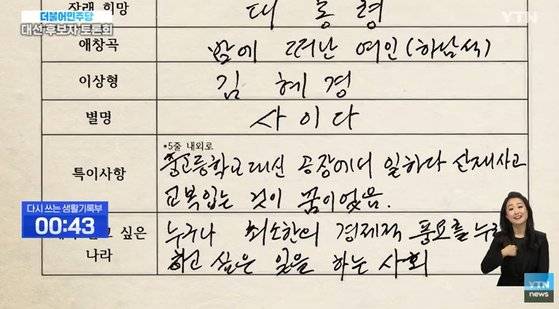 더불어민주당
대선후보자 토론회
YTN
장래 희망
대통령
애창곡
밤에 떠난 여인(하남석)
이상형
김혜경
별명
사이다
특이사항
*5줄 내외로
중고등학교 대신 공장에서 일하다 산재사고
교복입는 것이 꿈이었음.
다시 쓰는 생활기록부
00:43
싶은
나라
누구나 최소한의 경제적 풍요를
하고 싶은 일을 하는 사회
YTN
news